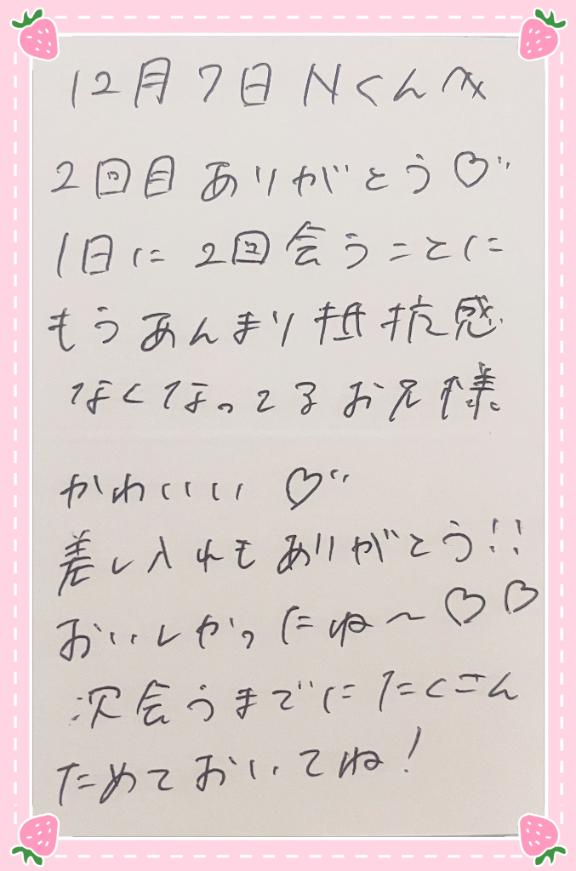 12月7日 Nくんへ
2回目 ありがとう♡
1日に 2回会うことに
もうあんまり抵抗感
なくなってるお兄様
かわいいい ♡
差し入れも ありがとう!!
おいしかったね〜♡♡
次会うまでにたくさん
ためておいてね!